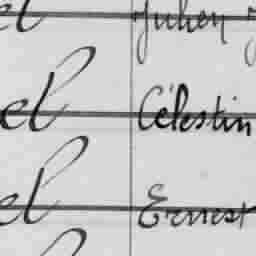 el Julien
el Célestin
el Ernest